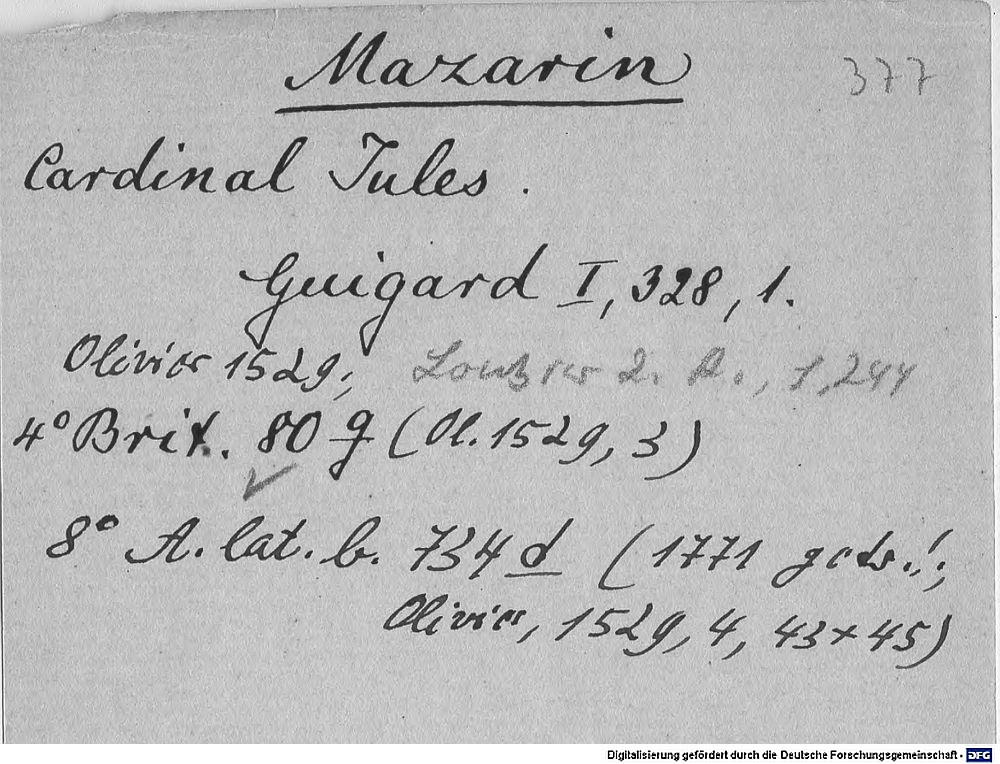 Mazarin 377
Cardinal Jules.
Guigard I, 328, 1.
Olivier 1529; 2. A., 1,244
4° Brit. 80 g (Ol. 1529, 3)
8° A. lat. b. 734 d (1771 gedr.!;
Olivier, 1529, 4, 43 x 45)
Digitalisierung gefördert durch die Deutsche Forschungsgemeinschaft - DFG